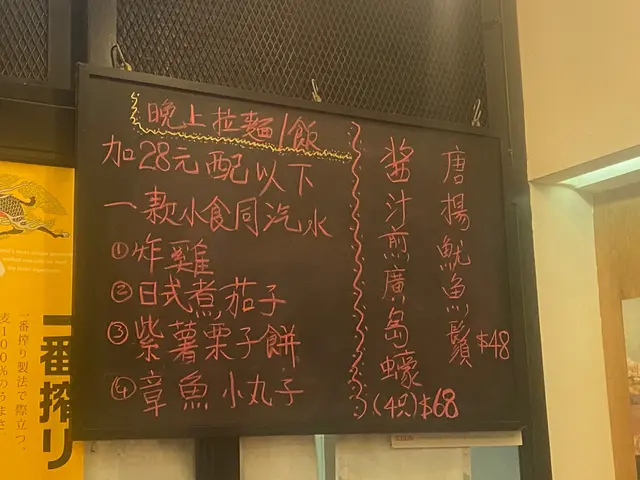 晚上拉麵/飯
加28元配以下
一款小食同汽水
①炸雞
②日式煮茄子
③紫薯栗子餅
④章魚小丸子
唐揚魷魚鬚 $48
醬汁煎廣島蠔
(4只)$68
一番搾り
一番搾り製法で際立つ、
麦100%のうまさ。